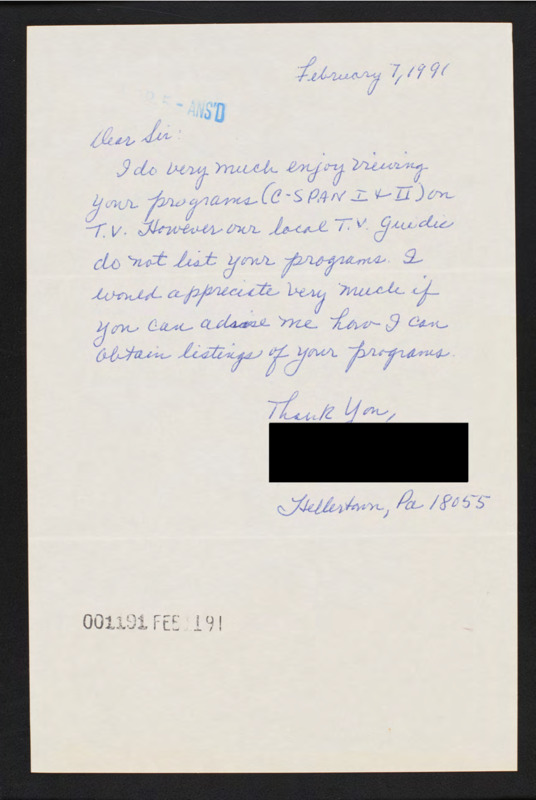 February 7, 1991
- ANS'D
Dear Sir:
I do very much enjoy viewing
your programs (C-SPAN I & II) on
T.V. However our local T.V. Guides
do not list your programs. I
would appreciate very much if
you can advise me how I can
obtain listings of your programs.
Thank You,
Hellertown, Pa 18055
001191 FEB 191